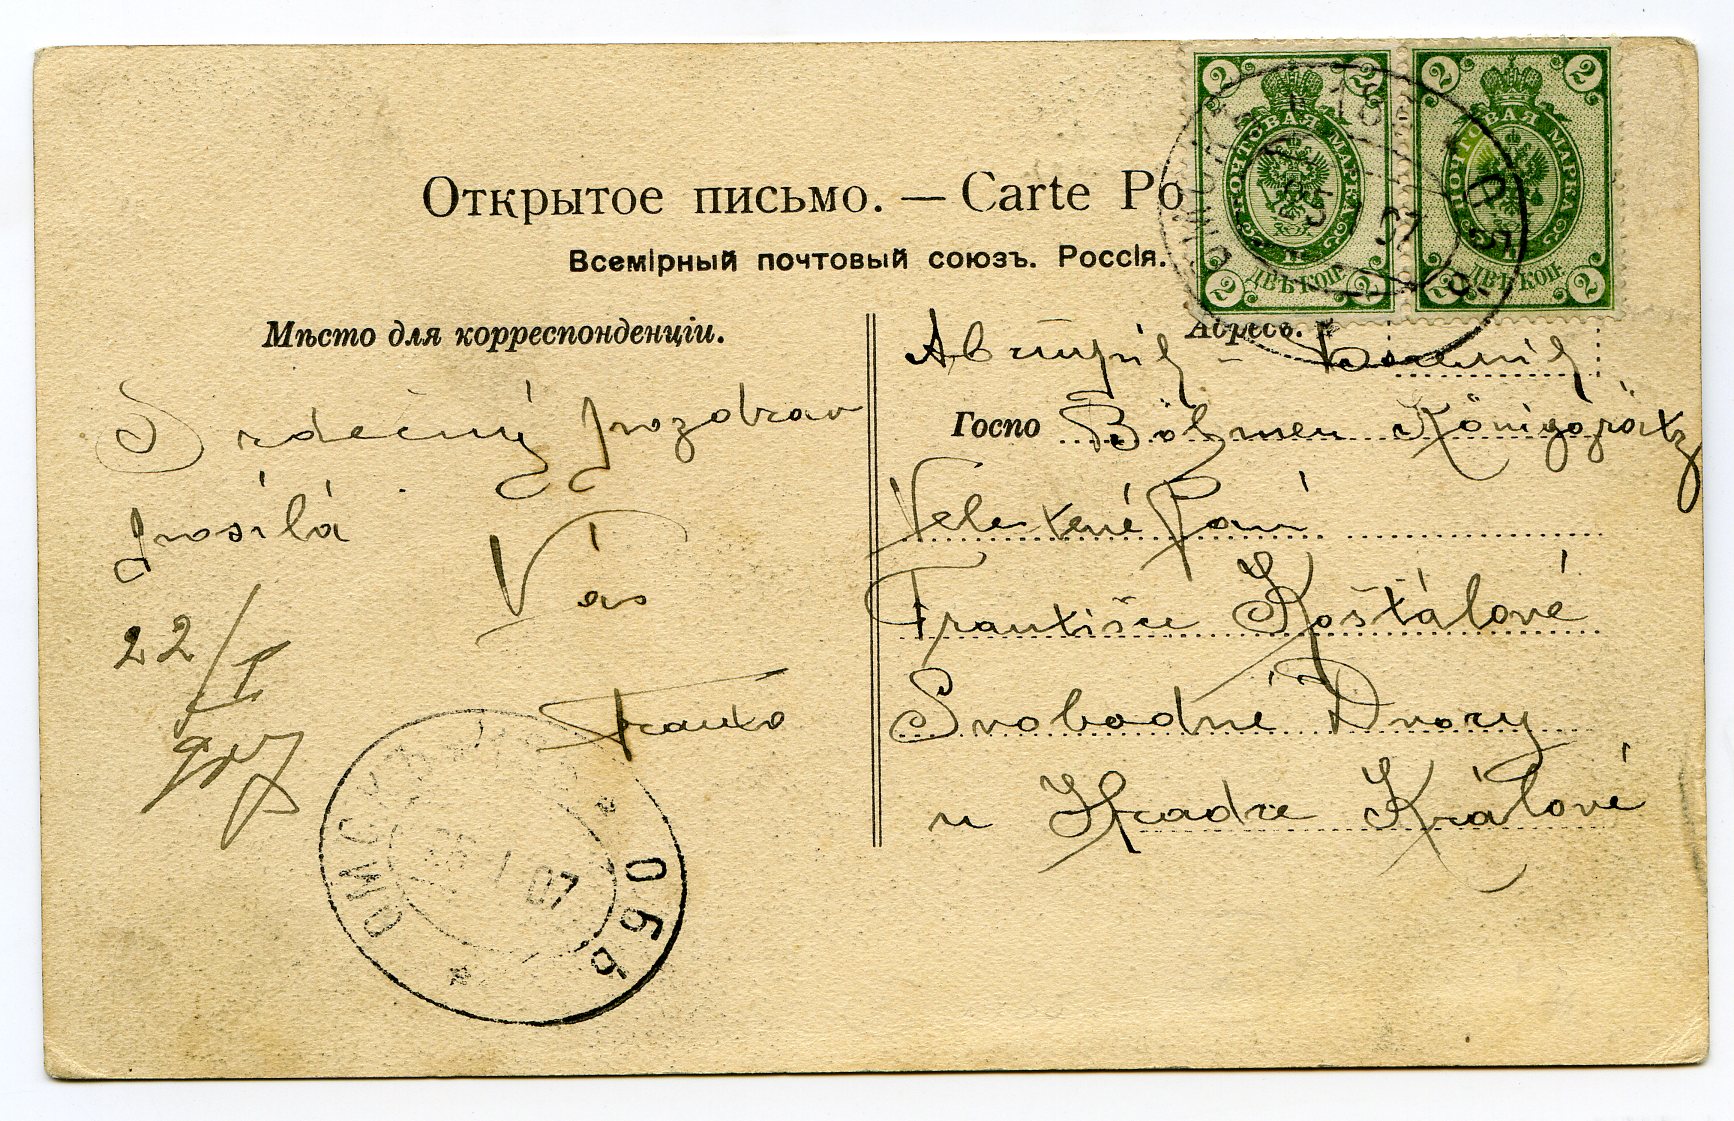 Открытое письмо. — Carte Po
Всемірный почтовый союзъ. Россія.
2 2 ПОЧТОВАЯ МАРКА 2 ДВѢ КОП. 2
2 2 ПОЧТОВАЯ МАРКА 2 ДВѢ КОП. 2
Мѣсто для корреспонденціи.
Srdečný pozdrav
posílá
Vás
Franta
22/I
907
ОМСКЪ * ОБЬ *
25 1 07
Адресъ.
Австрія – Богемія
Госпо Böhmen Königgrätz
Velectěné Paní
Františce Košťálové
Svobodné Dvory
u Hradce Králové